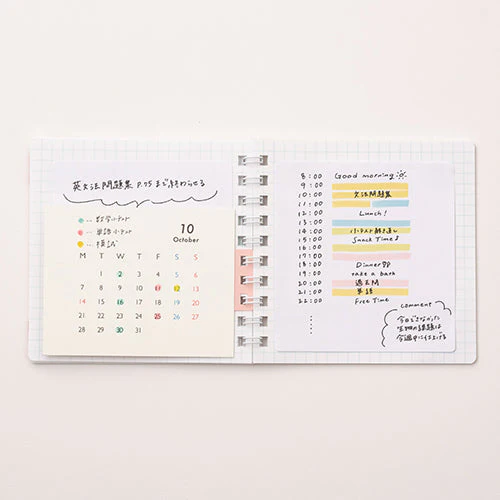 英文法問題集 P.75まで終わらせる
数学小テスト
単語小テスト
模試
10
October
M T W T F S S
1 2 3 4 5 6
7 8 9 10 11 12 13
14 15 16 17 18 19 20
21 22 23 24 25 26 27
28 29 30 31
8:00 Good morning
9:00
10:00 文法問題集
11:00
12:00 Lunch!
13:00
14:00 小テスト解き直し
15:00 Snack Time
16:00
17:00
18:00 Dinner
19:00 take a bath
20:00 過去問
21:00 単語
22:00 Free Time
comment
今日できなかった
生物の課題は
今週中に仕上げる